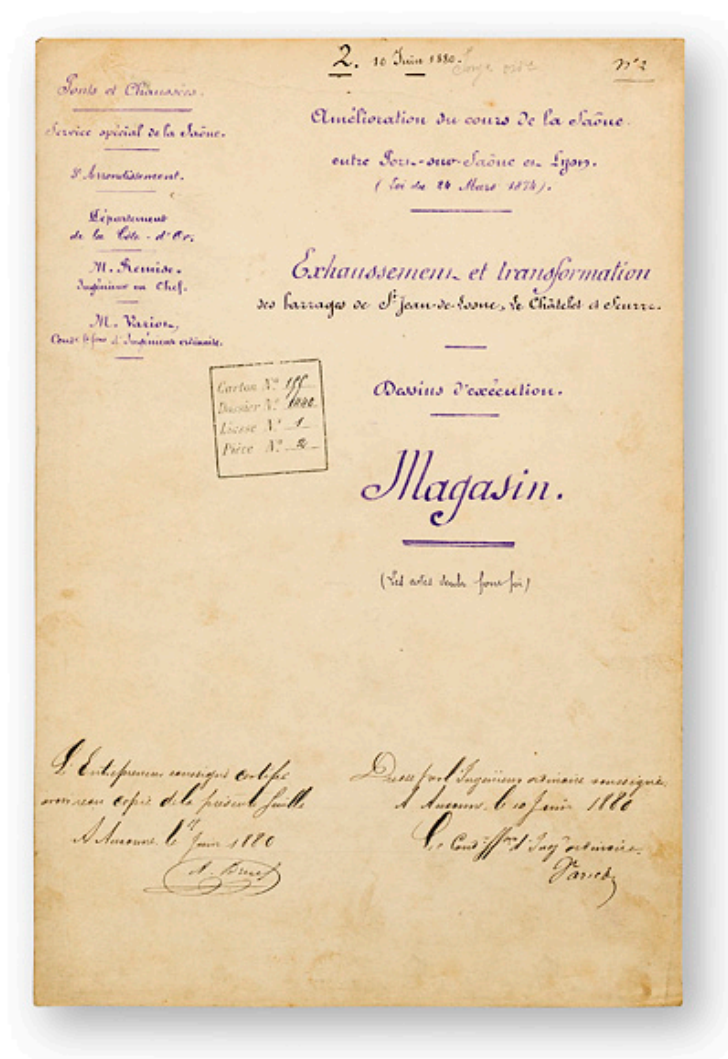 2. 10 Juin 1880.
N° 2
Ponts et Chaussées.
Service spécial de la Saône.
Arrondissement.
Département
de la Côte-d'Or.
M. Remise.
Ingénieur en Chef.
M. Variot,
Cond. d'Ingénieur ordinaire.
Amélioration du cours de la Saône
entre Port-sur-Saône et Lyon.
(Loi du 24 Mars 1874).
Exhaussement et transformation
des barrages de St Jean-de-Losne, Le Châtelet et Seurre.
Dessins d'exécution.
Magasin.
(Les cotes seules font foi)
Carton N°
Dossier N°
Liasse N° 1
Pièce N° 2
L'Entrepreneur soussigné certifie
avoir reçu copie de la présente feuille
A Auxonne le Juin 1880
Dressé par l'Ingénieur ordinaire soussigné,
A Auxonne le 10 Juin 1880
Le Cond. d'Ing. ordinaire.
Variot